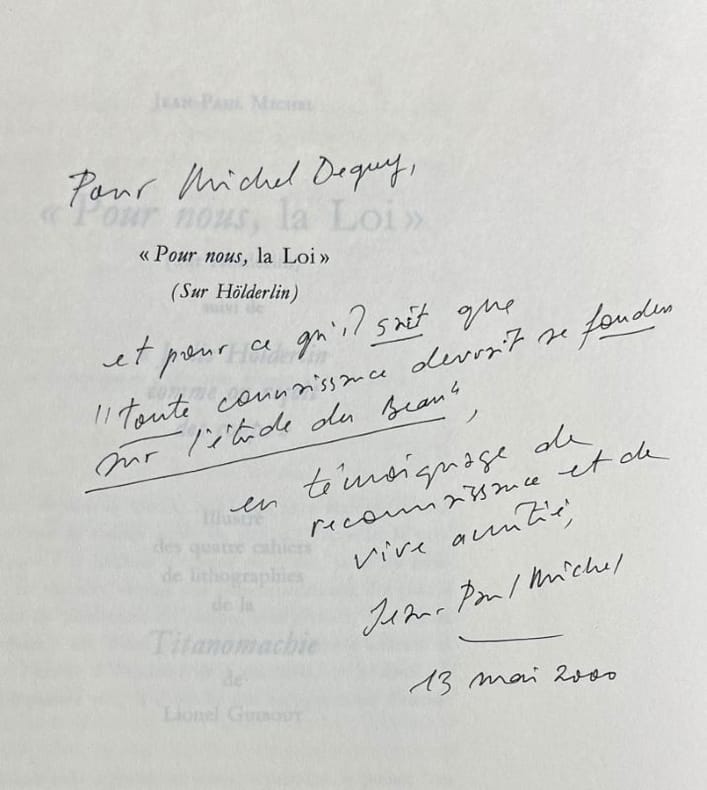 JEAN-PAUL MICHEL
Pour Michel Deguy,
« Pour nous, la Loi »
« Pour nous, la Loi »
(Sur Hölderlin)
suivi de
et pour ce qu'il sait que
"toute connaissance devrait se fonder
sur l'étude du Beau",
en témoignage de
reconnaissance et de
vive amitié,
Illustré
des quatre cahiers
de lithographies
de la
Jean-Paul Michel
Titanomachie
de
13 mai 2000
Lionel Guibout